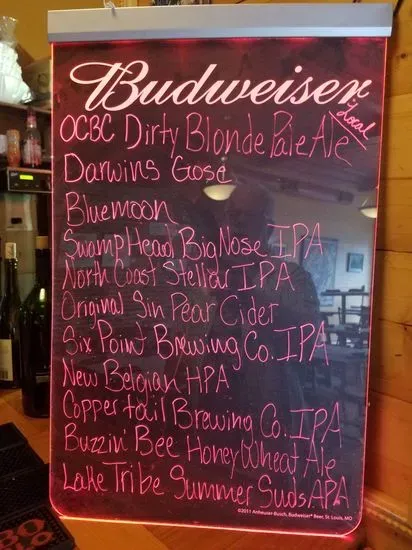 Budweiser
Local
OCBC Dirty Blonde Pale Ale
Darwins Gose
Bluemoon
Swamp Head Big Nose IPA
North Coast Stellar IPA
Original Sin Pear Cider
Six Point Brewing Co. IPA
New Belgian HPA
Coppertail Brewing Co. IPA
Buzzin Bee Honey Wheat Ale
Lake Tribe Summer Suds APA
©2011 Anheuser-Busch, Budweiser® Beer, St. Louis, MO